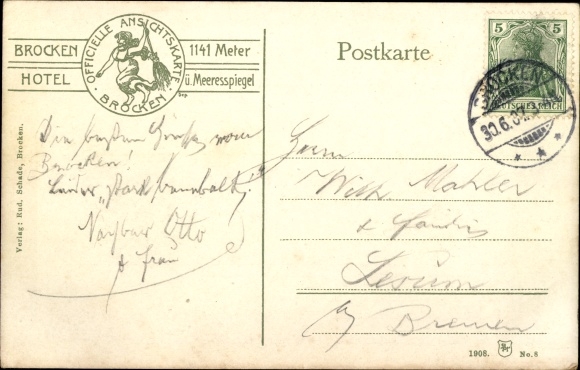 BROCKEN
HOTEL
OFFICIELLE ANSICHTSKARTE
BROCKEN
1141 Meter
ü. Meeresspiegel
Postkarte
5 5
DEUTSCHES REICH
BROCKEN
30.6.
Die besten Grüße vom
Brocken!
Leider stark bewölkt.
Nachbar Otto
& Frau
Herrn
Wilh. Mahler
& Familie
Lesum
b/ Bremen
Verlag: Rud. Schade, Brocken.
1908. No. 8